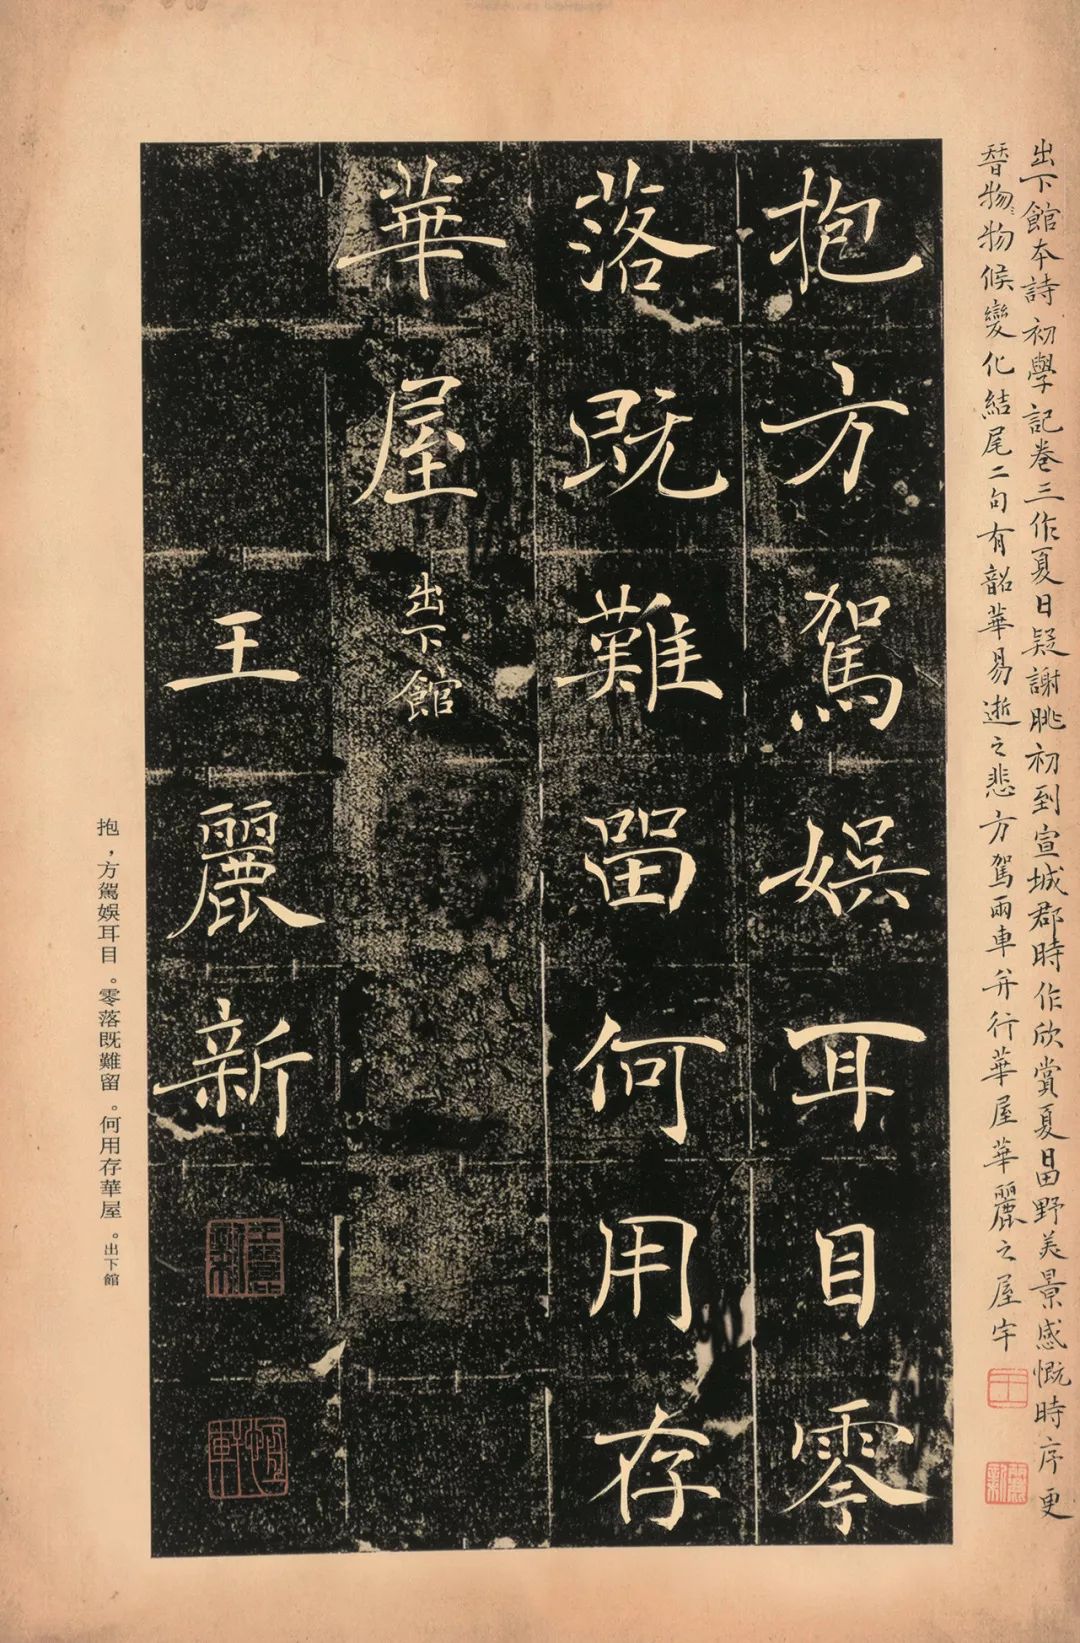 出下館本詩初學記卷三作夏日疑謝眺初到宣城郡時作欣賞夏日田野美景感慨時序更
替物物候變化結尾二句有韶華易逝之悲方駕兩車并行華屋華麗之屋宇
抱方駕娛耳目零
落既難留何用存
華屋出下館
王麗新
抱，方駕娛耳目。零落既難留。何用存華屋。出下館